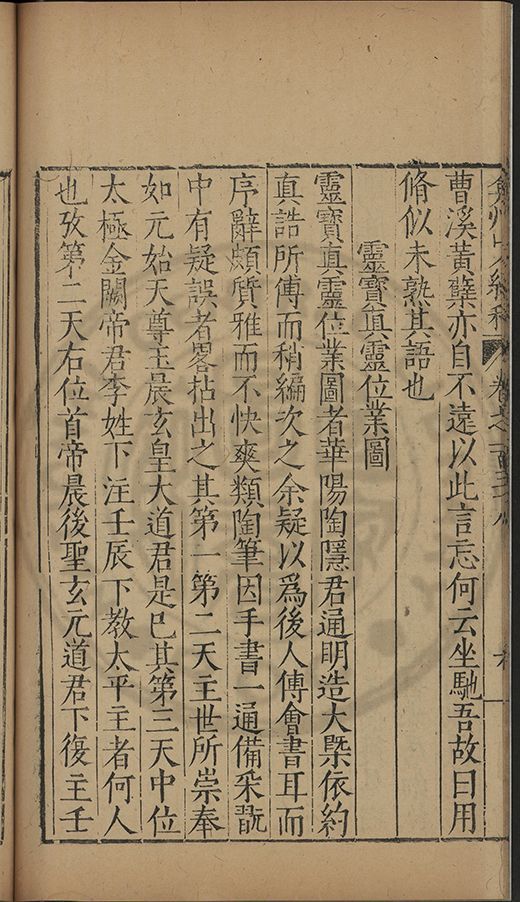 曹溪黃蘗亦自不遠以此言忘何云坐馳吾故曰用
脩似未熟其語也
靈寶真靈位業圖
靈寶真靈位業圖者華陽陶隱君通明造大槩依約
真誥所傳而稍編次之余疑以爲後人傅會書耳而
序辭頗質雅而不快爽類陶筆因手書一通備采翫
中有疑誤者畧拈出之其第一第二天主世所崇奉
如元始天尊玉晨玄皇大道君是已其第三天中位
太極金闕帝君李姓下注壬辰下教太平主者何人
也攷第二天右位首帝晨後聖玄元道君下復主壬